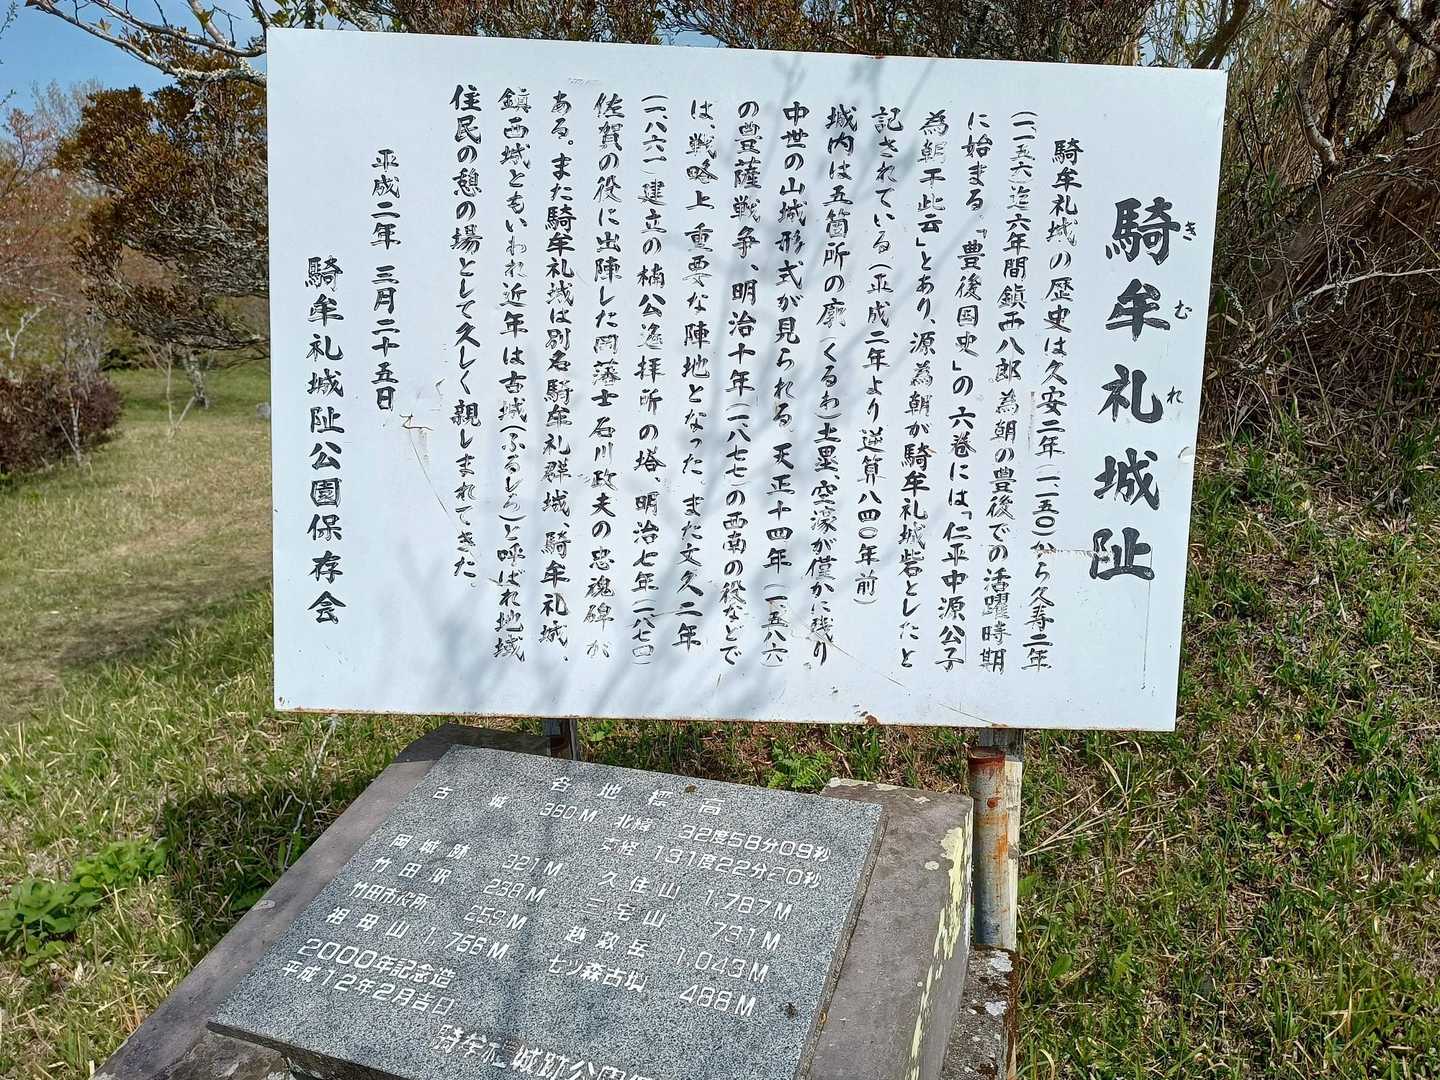 騎牟礼城址
き む れ
騎牟礼城の歴史は久安二年(一一五〇)から久寿二年
(一一五六)迄六年間鎮西八郎為朝の豊後での活躍時期
に始まる。「豊後国史」の六巻には「仁平中源公子
為朝干此云」とあり、源為朝が騎牟礼城砦としたと
記されている(平成二年より逆算八四〇年前)
城内は五箇所の廓(くるわ)土塁、空濠が僅かに残り
中世の山城形式が見られる。天正十四年(一五八六)
の豊薩戦争、明治十年(一八七七)の西南の役などで
は、戦略上重要な陣地となった。また文久二年
(一八六一)建立の楠公遙拝所の塔、明治七年(一八七四)
佐賀の役に出陣した岡藩士石川政夫の忠魂碑が
ある。また騎牟礼城は別名騎牟礼群城、騎牟礼城、
鎮西城ともいわれ近年は古城(ふるしろ)と呼ばれ地域
住民の憩の場として久しく親しまれてきた。
平成二年 三月二十五日
騎牟礼城址公園保存会
各地標高
古城 380M 北緯 32度58分09秒
東経 131度22分20秒
岡城跡 321M 久住山 1,787M
竹田駅 238M 三宅山 731M
竹田市役所 259M 越敷岳 1,043M
祖母山 1,756M 七ツ森古墳 488M
2000年記念造
平成12年2月吉日
騎牟礼城跡公園